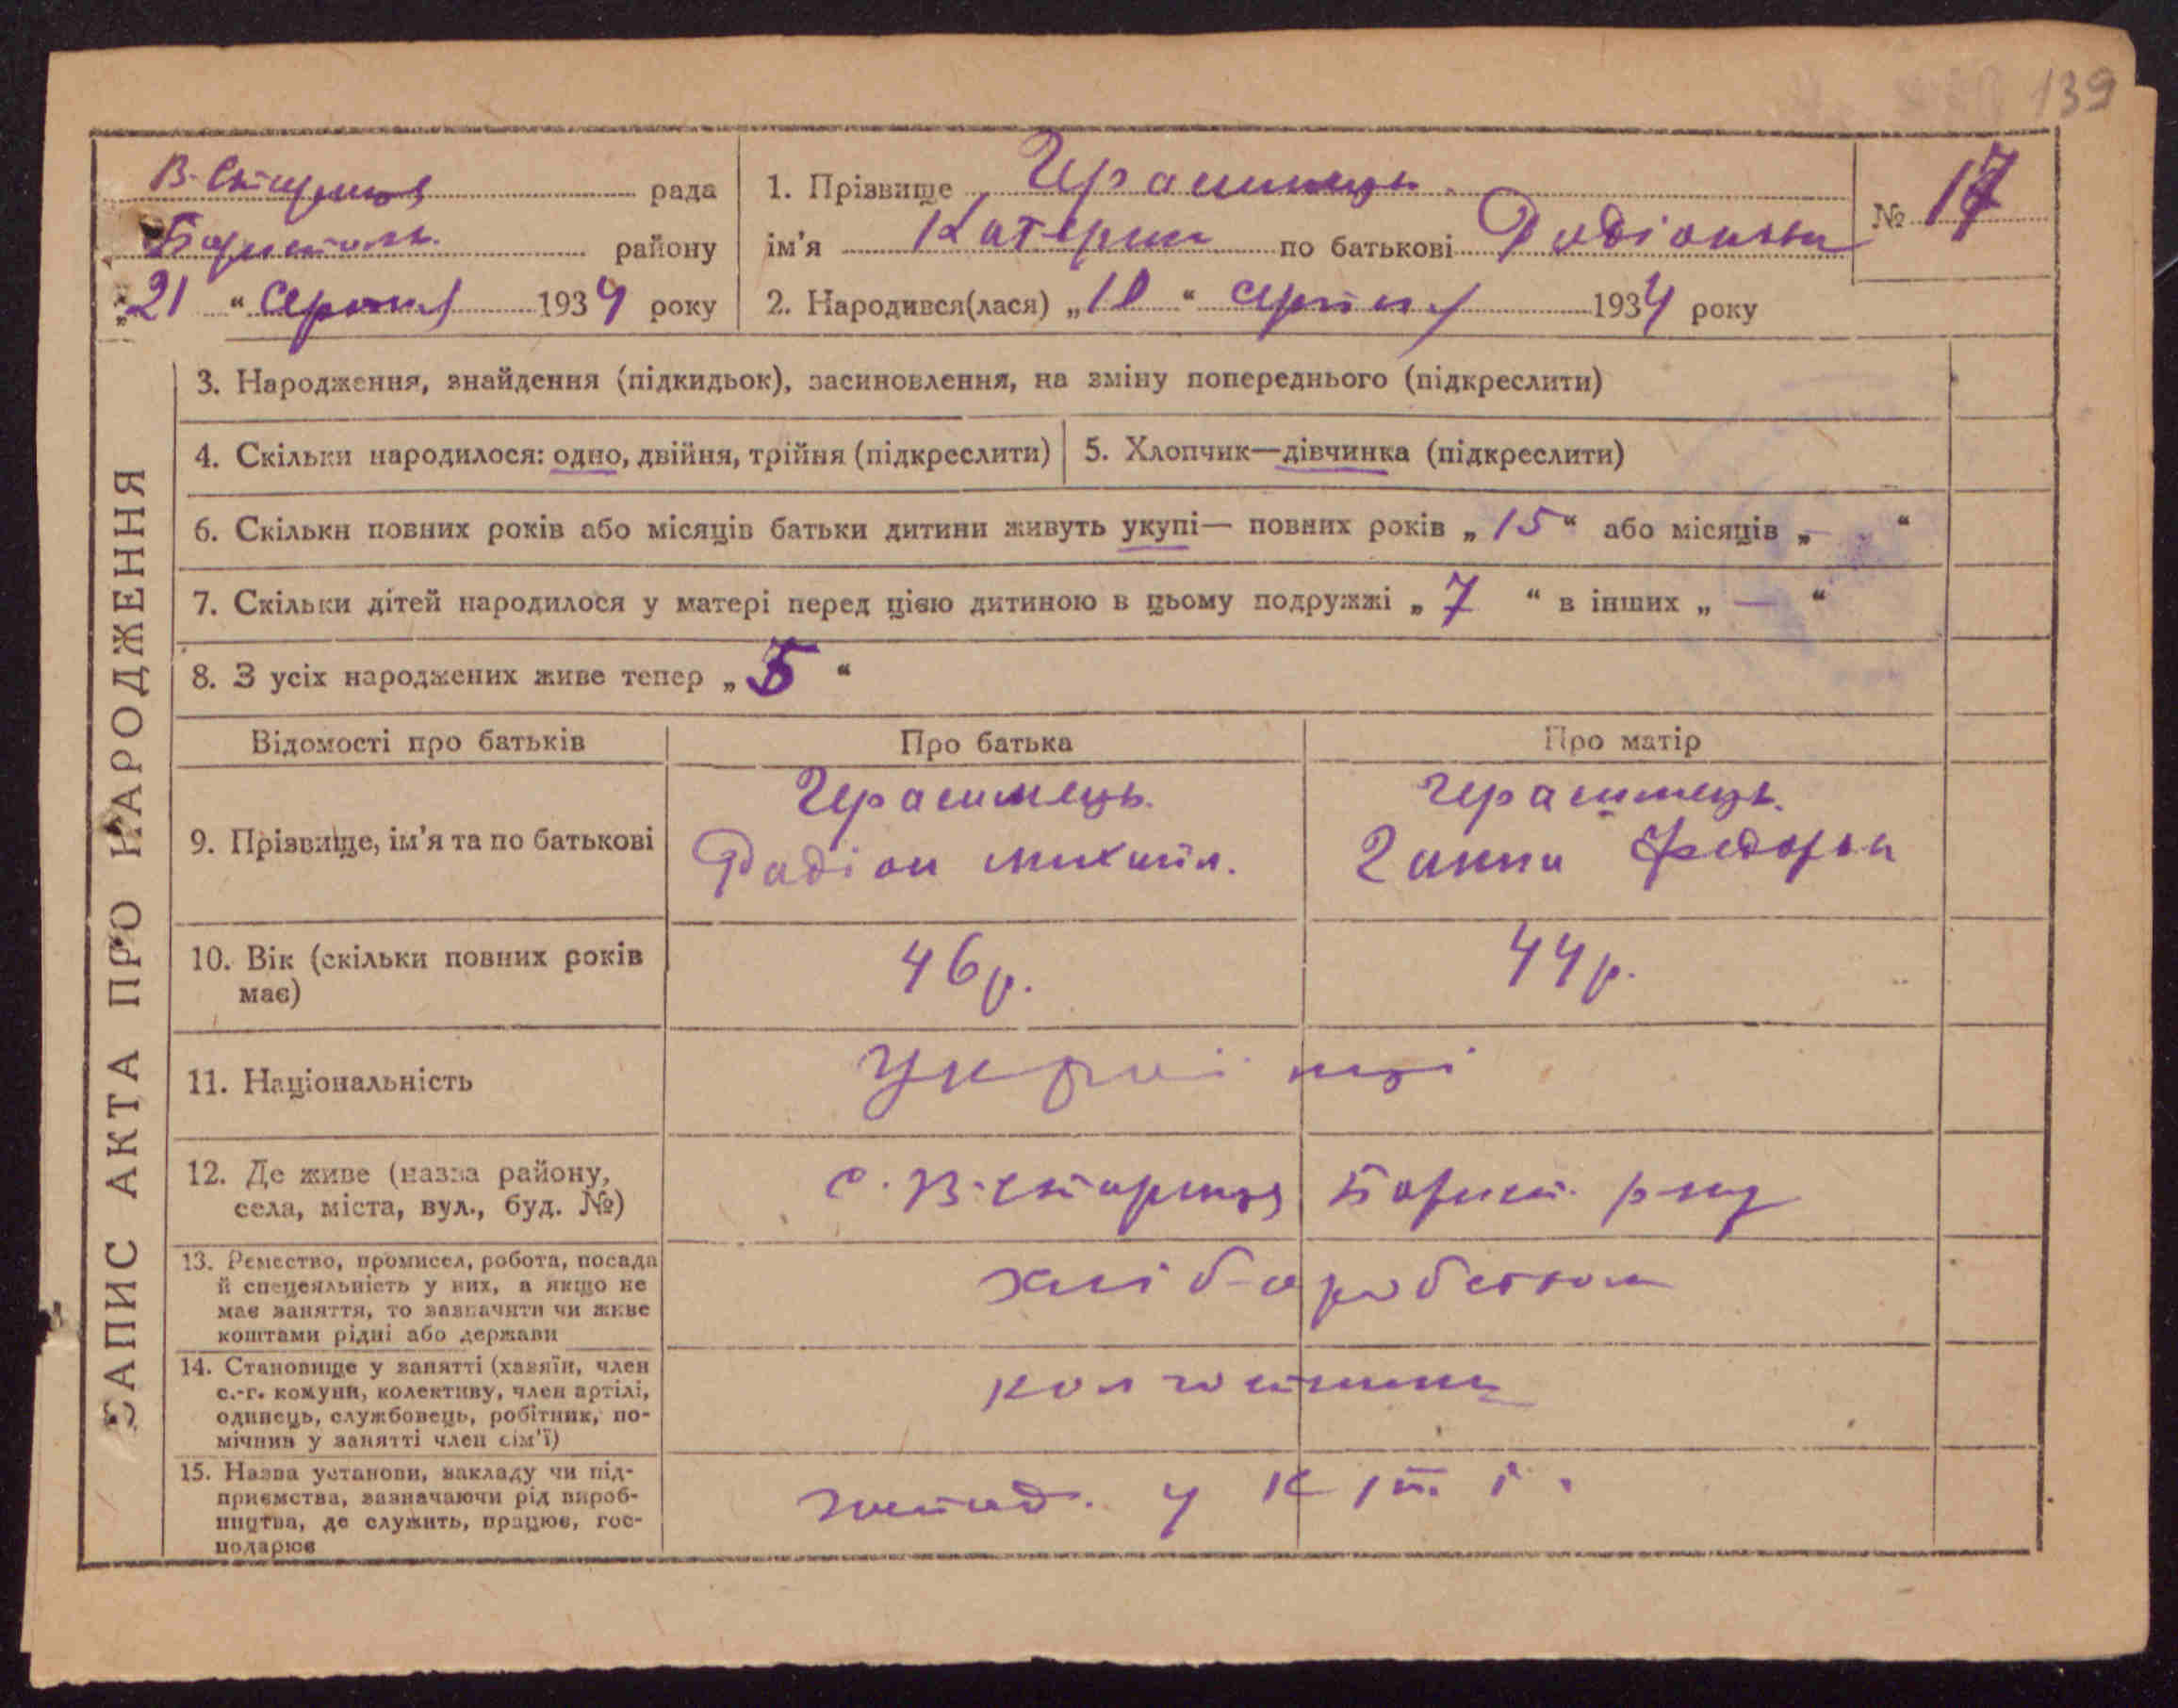 139
В-Старицька рада
Бориспольс. району
„21 “ Серпня 1934 року
1. Прізвище Герасимець.
ім'я Катерина по батькові Радіоновна
№ 17
2. Народився(лася) „10 “ серпня 1934 року
ЗАПИС АКТА ПРО НАРОДЖЕННЯ
3. Народження, знайдення (підкидьок), засиновлення, на зміну попереднього (підкреслити)
4. Скільки народилося: одно, двійня, трійня (підкреслити)
5. Хлопчик—дівчинка (підкреслити)
6. Скільки повних років або місяців батьки дитини живуть укупі— повних років „ 15 “ або місяців „ — “
7. Скільки дітей народилося у матері перед цією дитиною в цьому подружжі „ 7 “ в інших „ — “
8. З усіх народжених живе тепер „ 5 “
Відомості про батьків
Про батька
Про матір
9. Прізвище, ім'я та по батькові
Герасимець.
Радіон Михайл.
Герасимець.
Ганна Федоров
10. Вік (скільки повних років
має)
46 р.
44 р.
11. Національність
Українці
12. Де живе (назва району,
села, міста, вул., буд. №)
с. В-Стариця Борисп. р-ну
13. Ремество, промисел, робота, посада
й спецеяльність у них, а якщо не
має заняття, то зазначити чи живе
коштами рідні або держави
хліборобством
14. Становище у занятті (хазяїн, член
с.-г. комуни, колективу, член артілі,
одинець, службовець, робітник, по-
мічник у занятті член сім'ї)
колгоспники
15. Назва установи, закладу чи під-
приємства, зазначаючи рід вироб-
ництва, де служить, працює, гос-
подарює
господ. у